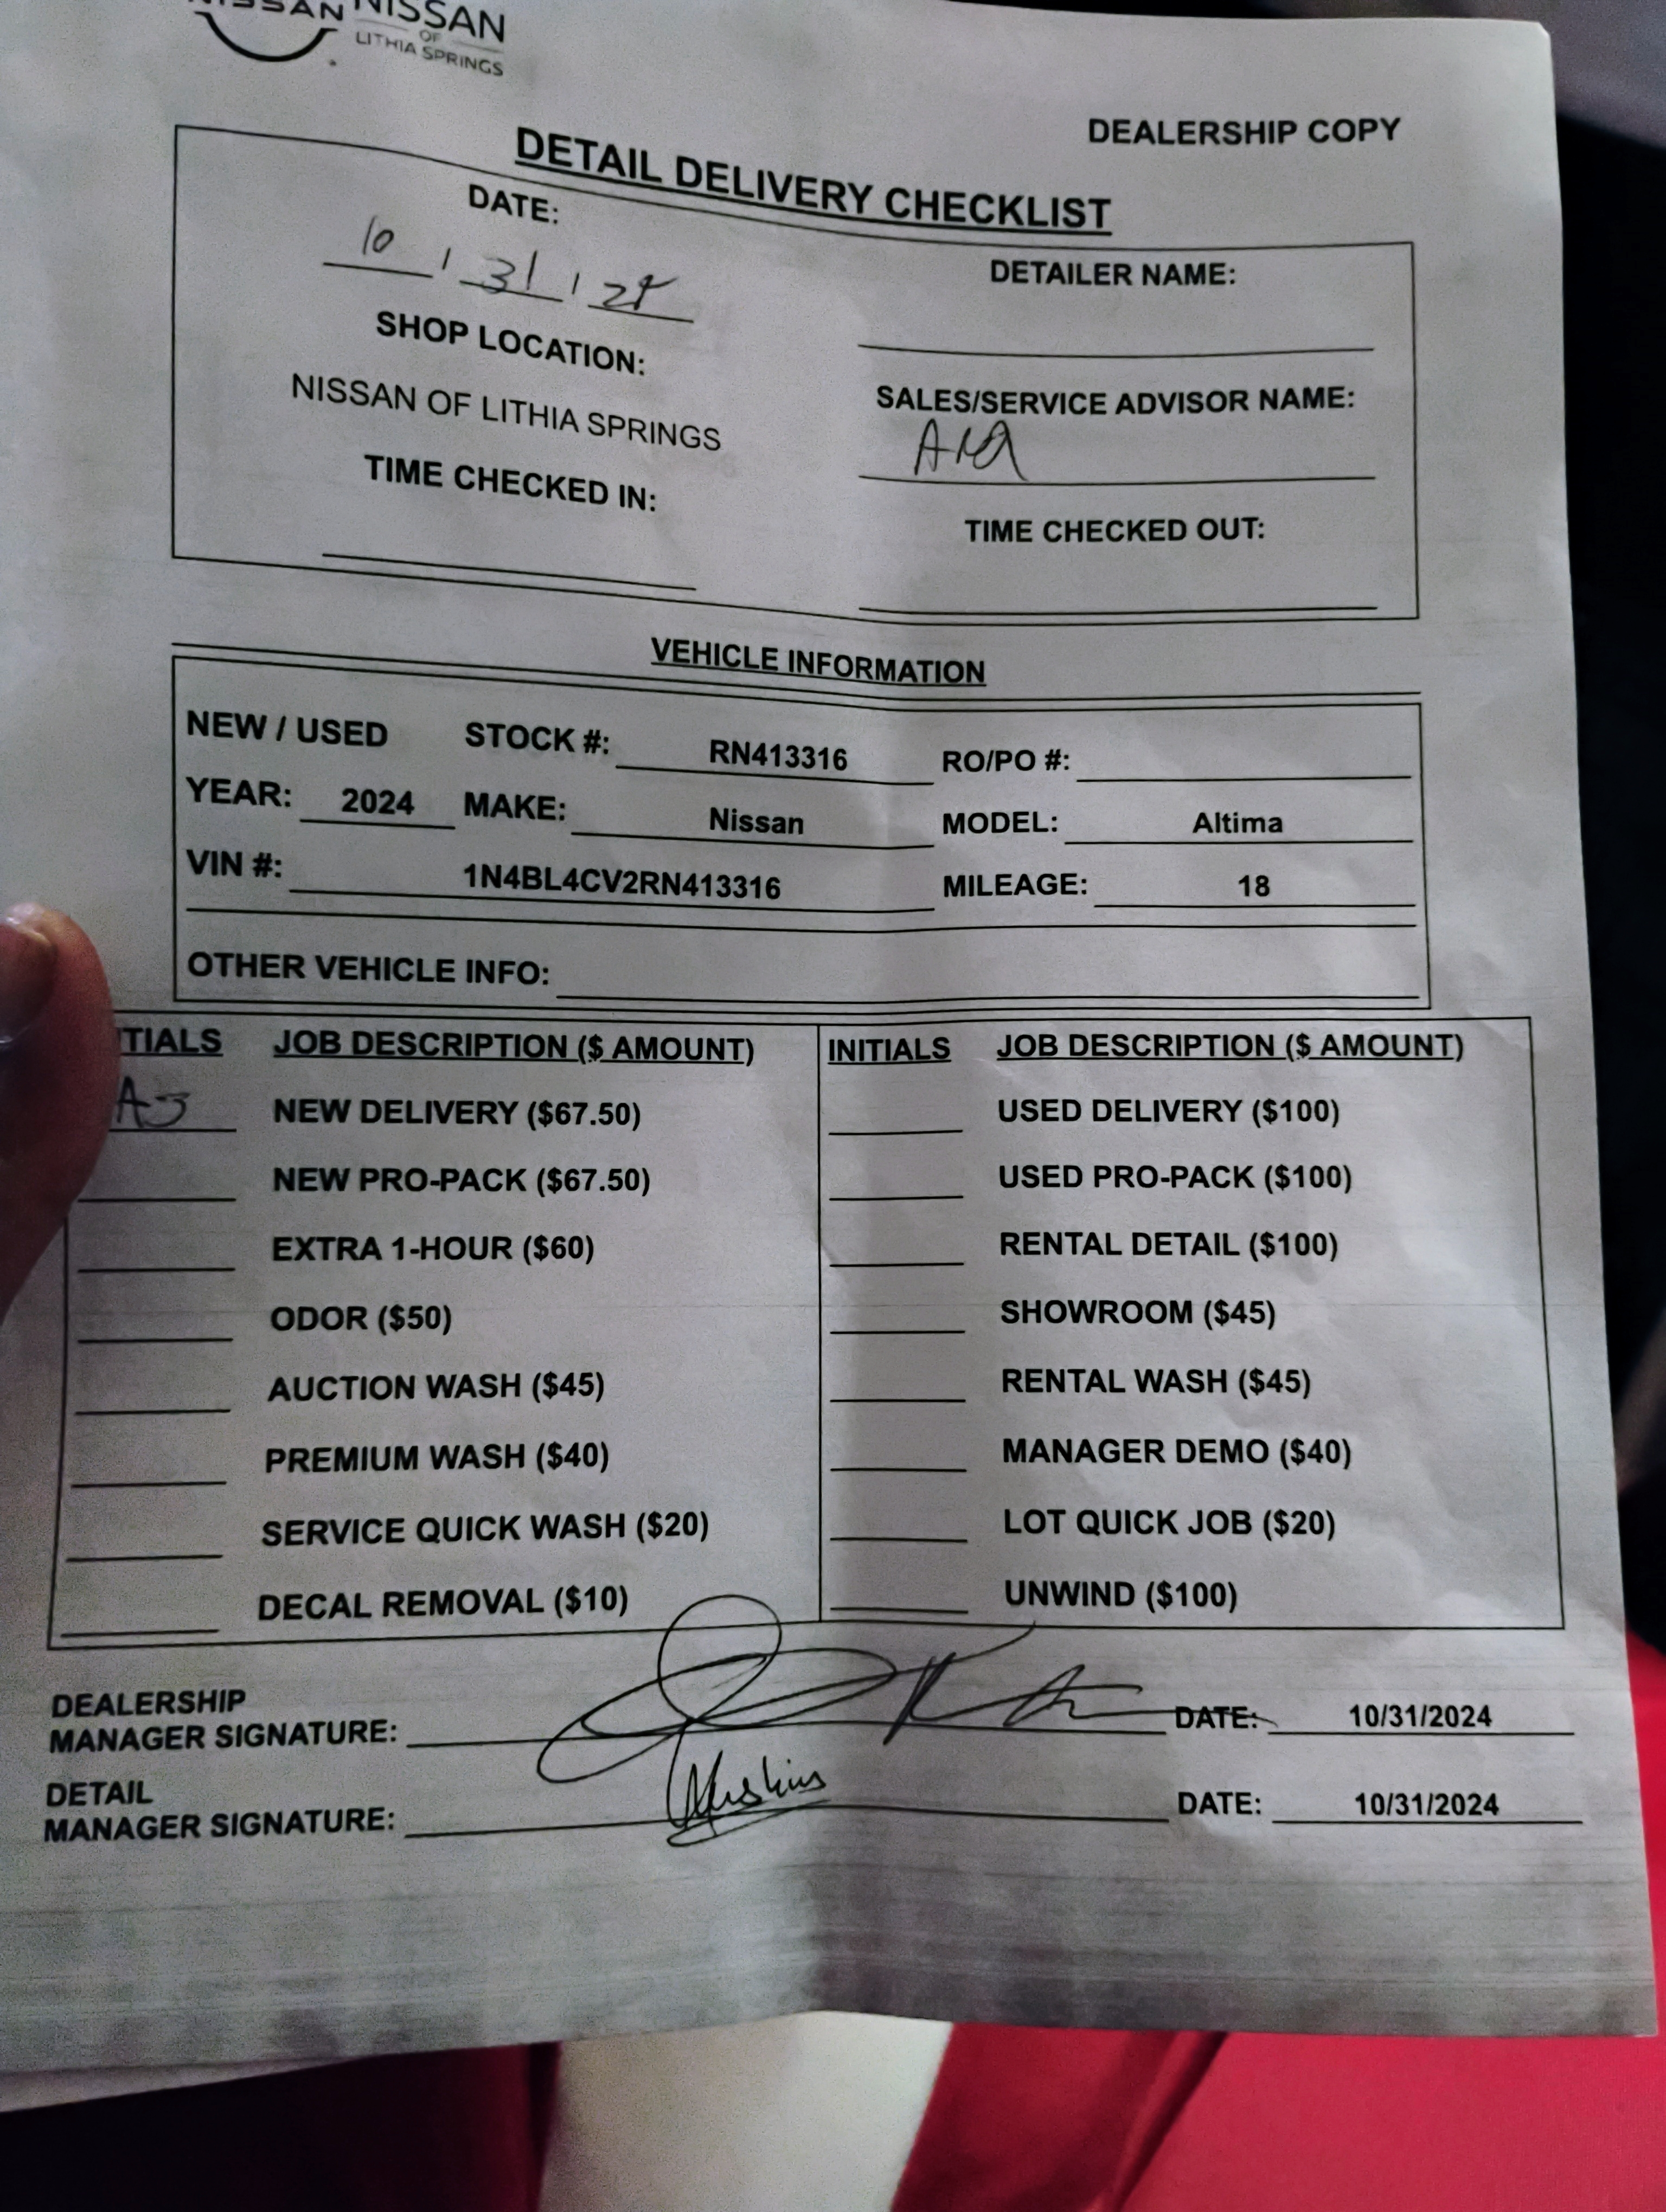 NISSAN NISSAN
OF
LITHIA SPRINGS
DEALERSHIP COPY
DETAIL DELIVERY CHECKLIST
DATE:
10 / 31 / 24
DETAILER NAME:
SHOP LOCATION:
NISSAN OF LITHIA SPRINGS
SALES/SERVICE ADVISOR NAME:
TIME CHECKED IN:
TIME CHECKED OUT:
VEHICLE INFORMATION
NEW / USED STOCK #: RN413316 RO/PO #:
YEAR: 2024 MAKE: Nissan MODEL: Altima
VIN #: 1N4BL4CV2RN413316 MILEAGE: 18
OTHER VEHICLE INFO:
TIALS JOB DESCRIPTION ($ AMOUNT) INITIALS JOB DESCRIPTION ($ AMOUNT)
NEW DELIVERY ($67.50) USED DELIVERY ($100)
NEW PRO-PACK ($67.50) USED PRO-PACK ($100)
EXTRA 1-HOUR ($60) RENTAL DETAIL ($100)
ODOR ($50) SHOWROOM ($45)
AUCTION WASH ($45) RENTAL WASH ($45)
PREMIUM WASH ($40) MANAGER DEMO ($40)
SERVICE QUICK WASH ($20) LOT QUICK JOB ($20)
DECAL REMOVAL ($10) UNWIND ($100)
DEALERSHIP
MANAGER SIGNATURE: DATE: 10/31/2024
DETAIL
MANAGER SIGNATURE: DATE: 10/31/2024